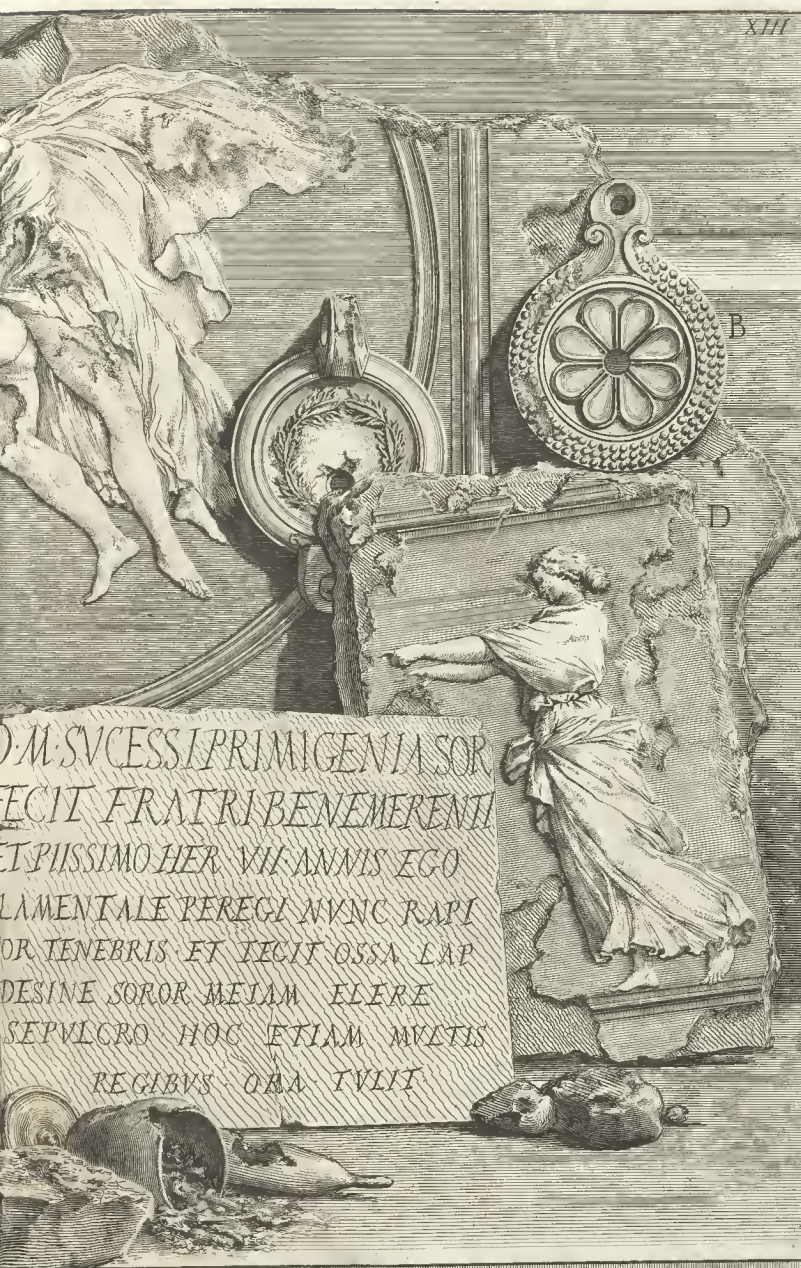 XIII
B
D
D·M·SVCESSI PRIMIGENIA SOR
FECIT FRATRI BENEMERENTI
ET PIISSIMO HER VII·ANNIS EGO
LAMENTALE PEREGI NVNC RAPI
OR TENEBRIS·ET TEGIT OSSA LAP
DESINE SOROR MEIAM ELERE
SEPVLCRO HOC ETIAM MVLTIS
REGIBVS·ORA·TVLIT